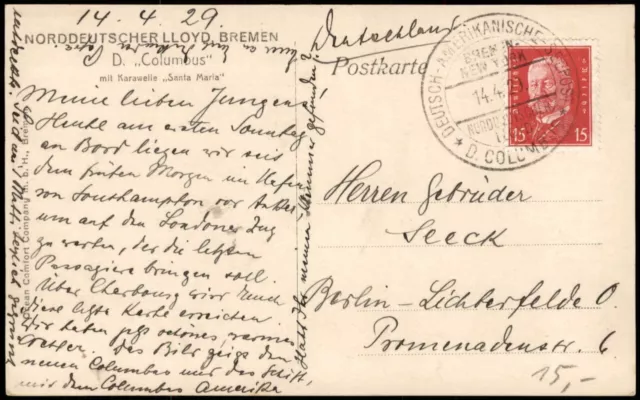 14.4.29.
NORDDEUTSCHER LLOYD, BREMEN
D. „Columbus“
mit Karawelle „Santa Maria“
Meine lieben Jungen!
Heute am ersten Sonntag
an Bord liegen wir seit
dem frühen Morgen im Hafen
von Southampton vor Anker
um auf den Londoner Zug
zu warten, der die letzten
Passagiere bringen soll.
Über Cherbourg wird Euch
diese letzte Karte erreichen
Wir haben schönes, warmes
Wetter. Das Bild zeigt den
neuen Columbus und das Schiff,
mit dem Columbus Amerika
Habt Ihr meinen gefunden?
Ocean Comfort Company m. b. H., Bremen
Deutschland
Postkarte
DEUTSCH-AMERIKANISCHE SEEPOST
BREMEN-
NEW YORK
14.4.29
D. COLUMBUS
15 15
Herren Gebrüder
Seeck
Berlin-Lichterfelde O.
Promenadenstr. 6
15,-